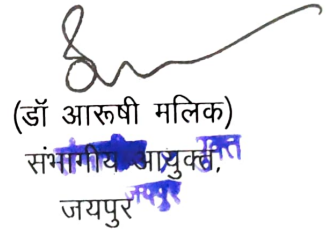 (डॉ आरूषी मलिक)
संभागीय आयुक्त,
जयपुर
जयपुर